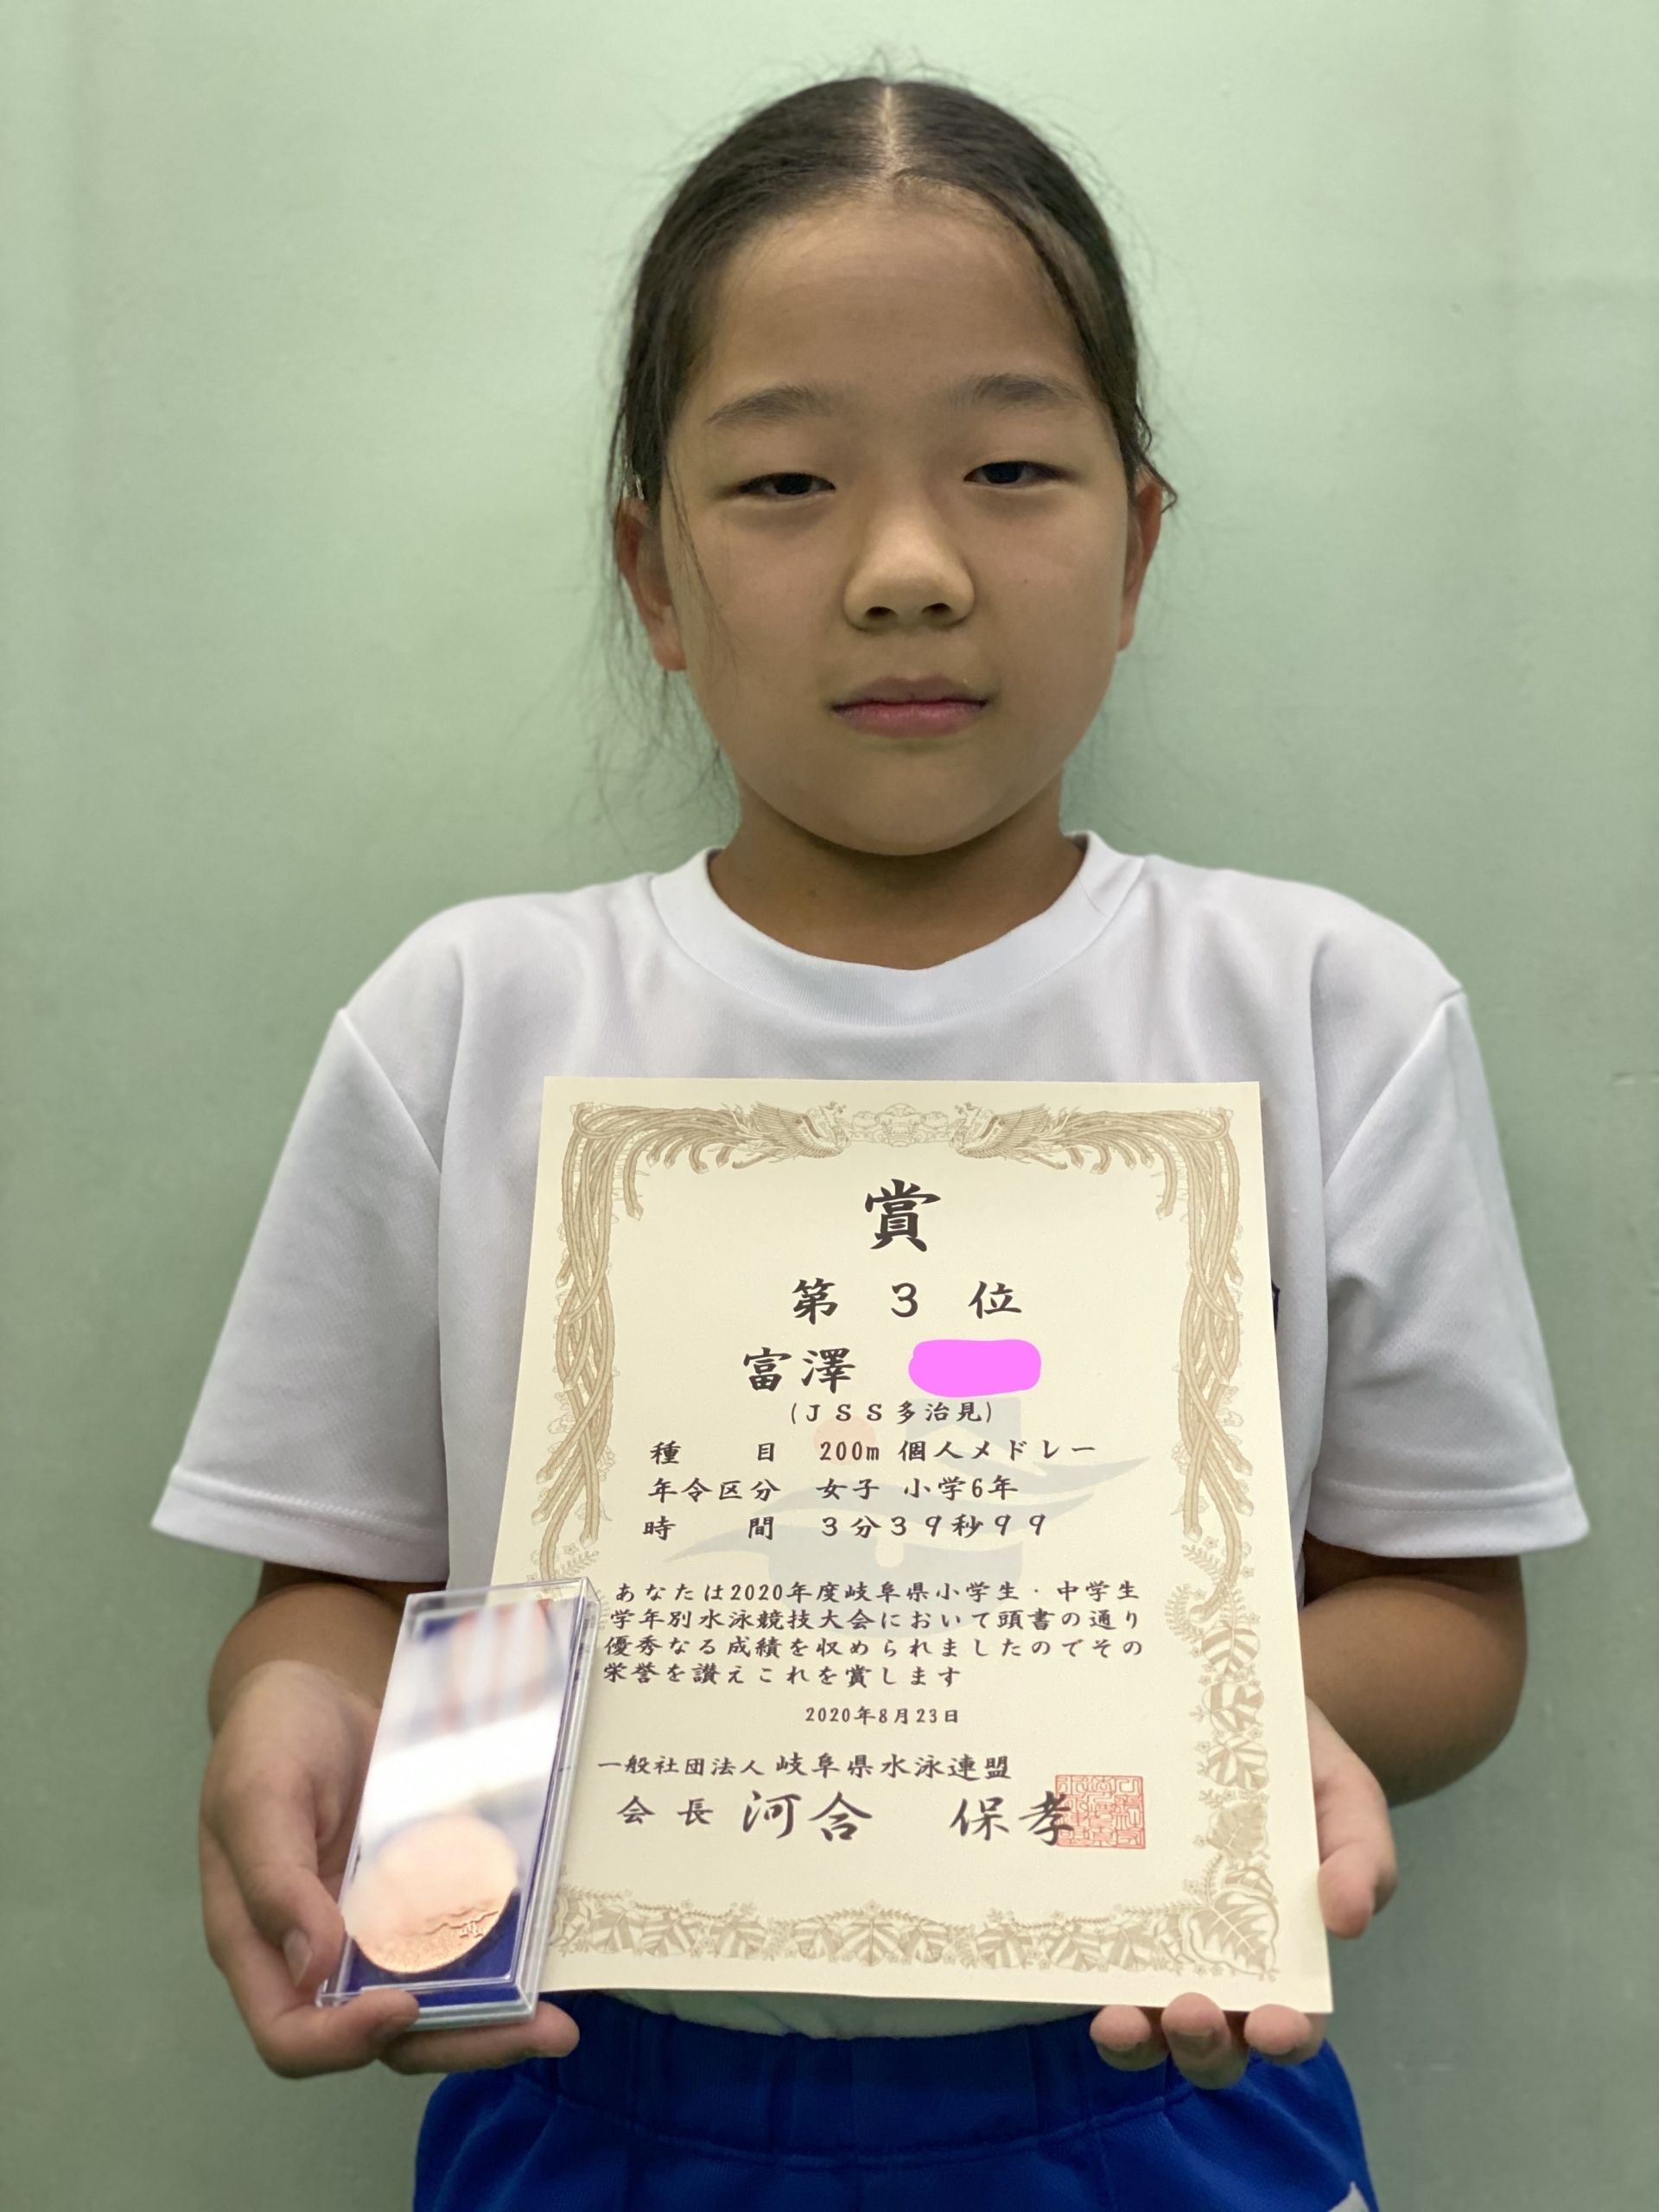 賞
第 3 位
富澤
(JSS多治見)
種 目 200m 個人メドレー
年令区分 女子 小学6年
時 間 3分39秒99
あなたは2020年度岐阜県小学生・中学生
学年別水泳競技大会において頭書の通り
優秀なる成績を収められましたのでその
栄誉を讃えこれを賞します
2020年8月23日
一般社団法人 岐阜県水泳連盟
会長 河合 保孝